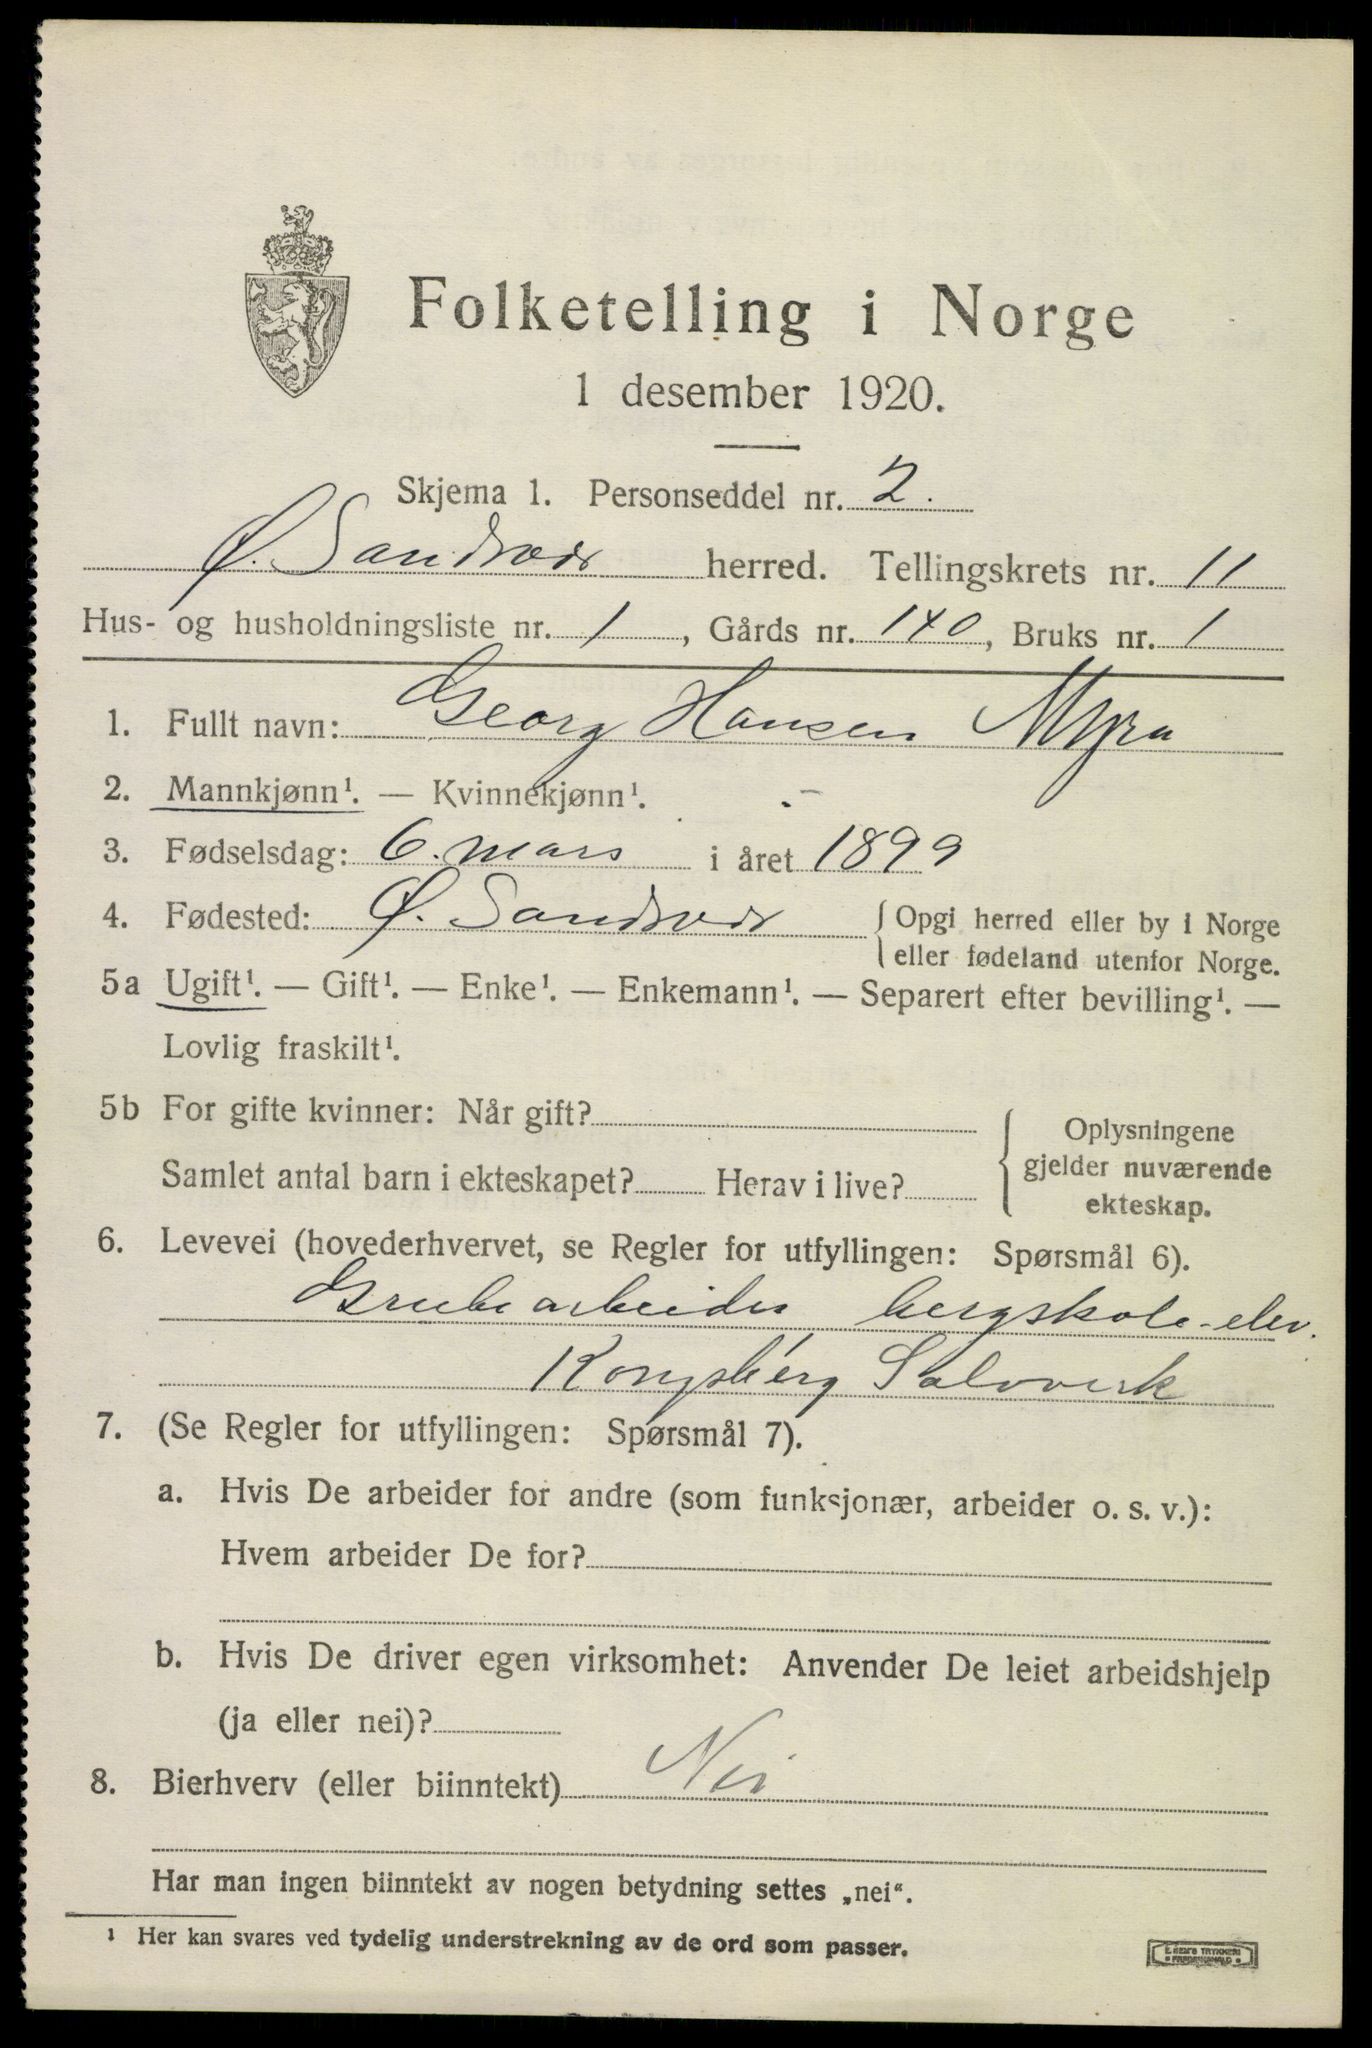 Folketelling i Norge
1 desember 1920.
Skjema 1. Personseddel nr. 2.
Ø. Sandsvær herred. Tellingskrets nr. 11
Hus- og husholdningsliste nr. 1, Gårds nr. 140, Bruks nr. 1
1. Fullt navn: Georg Hansen Myra
2. Mannkjønn¹. — Kvinnekjønn¹.
3. Fødselsdag: 6. mars i året 1899
4. Fødested: Ø. Sandsvær { Opgi herred eller by i Norge
eller fødeland utenfor Norge.
5a Ugift¹. — Gift¹. — Enke¹. — Enkemann¹. — Separert efter bevilling¹. —
Lovlig fraskilt¹.
5b For gifte kvinner: Når gift?
Samlet antal barn i ekteskapet? Herav i live?
{ Oplysningene
gjelder nuværende
ekteskap.
6. Levevei (hovederhvervet, se Regler for utfyllingen: Spørsmål 6).
Grubearbeider bergskole-elev.
Kongsberg Sølvverk
7. (Se Regler for utfyllingen: Spørsmål 7).
a. Hvis De arbeider for andre (som funksjonær, arbeider o. s. v.):
Hvem arbeider De for?
b. Hvis De driver egen virksomhet: Anvender De leiet arbeidshjelp
(ja eller nei)?
8. Bierhverv (eller biinntekt) Nei
Har man ingen biinntekt av nogen betydning settes „nei“.
¹ Her kan svares ved tydelig understrekning av de ord som passer.